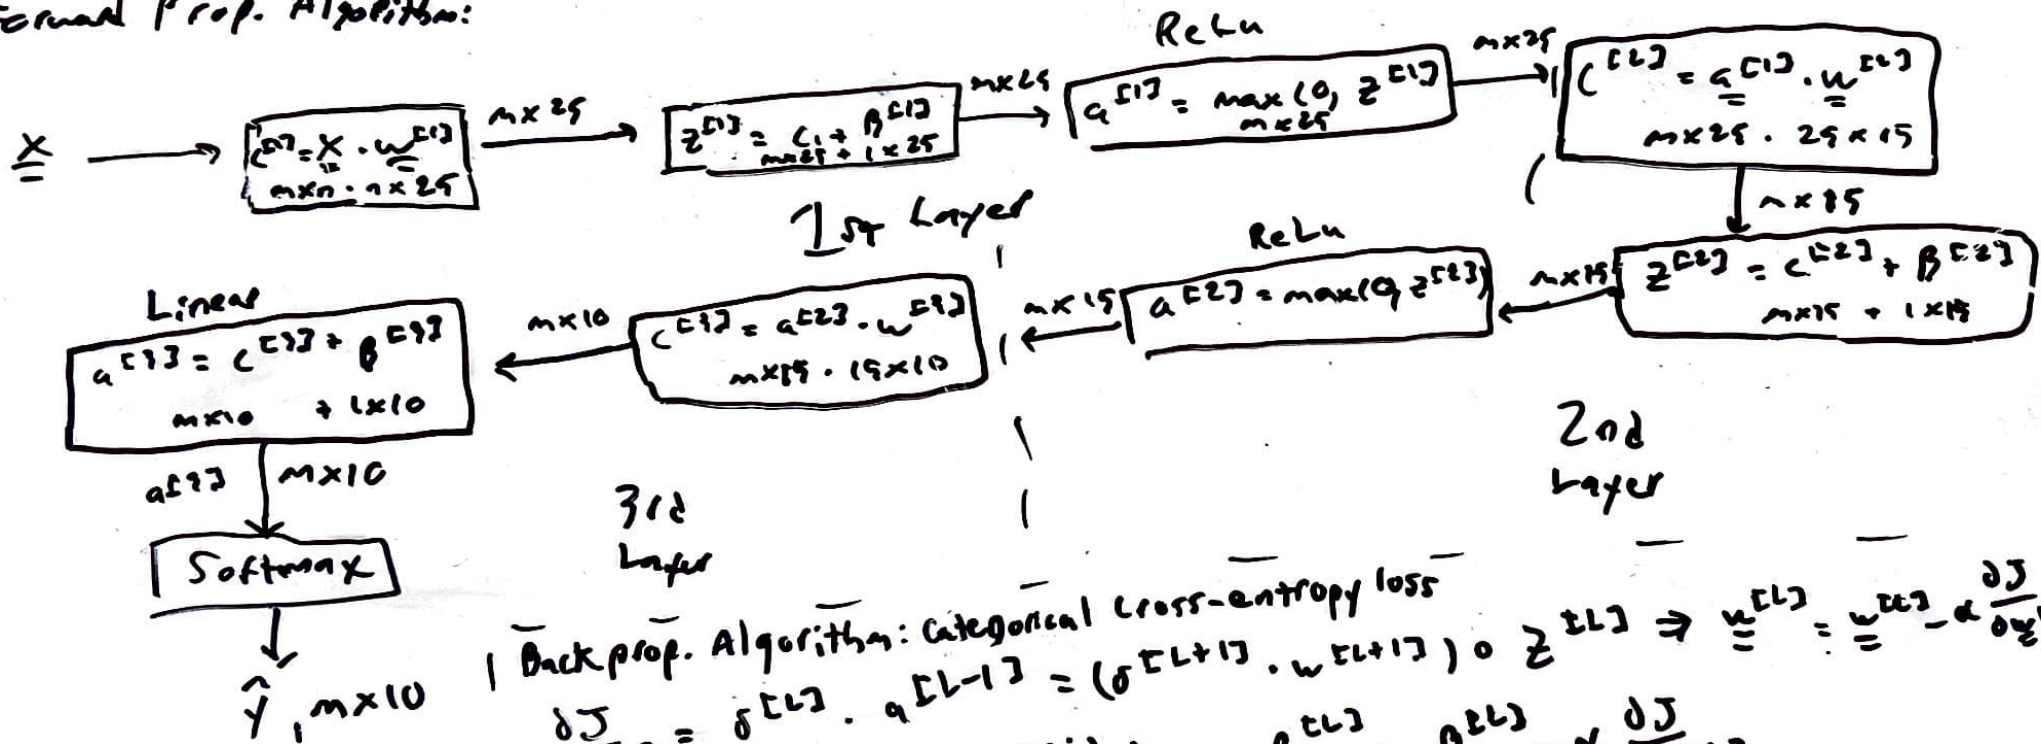 Forward Prop. Algorithm:
X
C[1] = X . w[1]
mxn . nx25
mx25
z[1] = C1 + β[1]
mx25 + 1x25
mx25
ReLu
a[1] = max(0, z[1])
mx25
mx25
C[2] = a[1] . w[2]
mx25 . 25x15
mx15
1st Layer
z[2] = C[2] + β[2]
mx15 + 1x15
mx15
ReLu
a[2] = max(0, z[2])
mx15
C[3] = a[2] . w[3]
mx15 . 15x10
mx10
Linear
a[3] = C[3] + β[3]
mx10 + 1x10
2nd
Layer
a[3] mx10
3rd
Layer
Softmax
ŷ, mx10
Backprop. Algorithm: Categorical Cross-entropy loss
∂J = δ[L] . a[L-1] = (δ[L+1] . w[L+1]) o Z[L] ⇒ w[L] = w[L] - α ∂J/∂w
β[L] β[L] ∂J